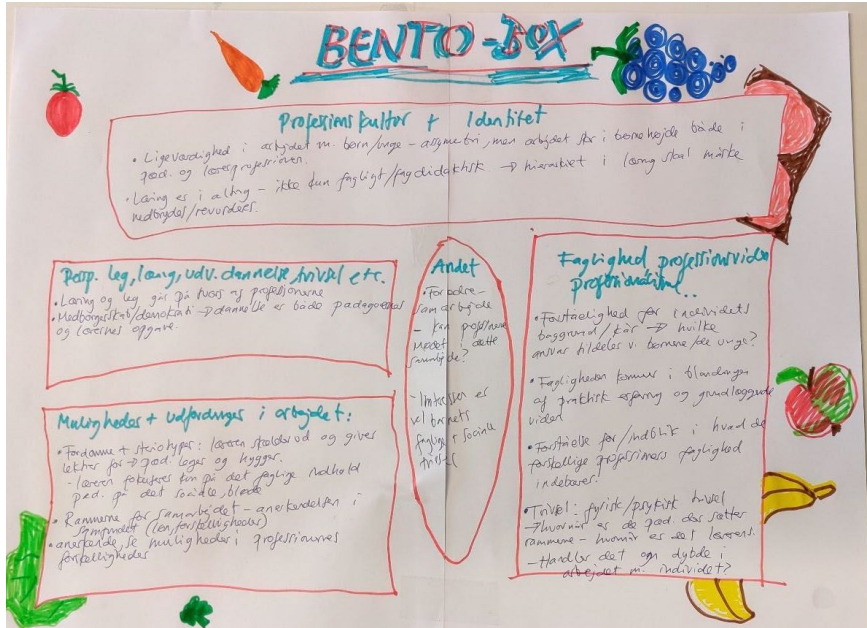 BENTO-BOX
Professionskultur + Identitet
• Ligeværdighed i arbejdet m. børn/unge - assymetri, men arbejdet sker i børnehøjde både i
pæd. og lærerprofessionen.
• Læring er i alting - ikke kun fagligt/fagdidaktisk → hierarkiet i læring skal måske
nedbrydes/revurderes.
Persp. leg, læring, udv. dannelse, trivsel etc.
• Læring og leg går på tværs af professionerne
• Medborgerskab/demokrati → dannelse er både pædagogernes
og lærernes opgave.
Muligheder + udfordringer i arbejdet:
• Fordomme + steriotyper: læreren skælder ud og giver
lektier for → pæd. leger og hygger.
- læreren fokuserer kun på det faglige indhold
pæd. på det sociale, bløde
• Rammerne for samarbejdet - anerkendelsen i
samfundet (lønforskelligheder)
• anerkende, se muligheder i professionernes
forskelligheder
Andet
• Forældre-
samarbejde
- kan professionerne
mødes i dette
samarbejde?
- Interessen er
vel barnets
faglige + sociale
trivsel
Faglighed, professionsviden
• Forståelighed for individets
baggrund/kår → hvilke
ansvar tildeles vi børnene/de unge?
• Fagligheden kommer i blandingen
af praktisk erfaring og grundlæggende
viden
• Forståelse for/indblik i hvad de
forskellige professioners faglighed
indebærer.
• Trivsel: fysisk/psykisk trivsel
→ hvornår er de pæd. der sætter
rammerne - hvornår er det lærerens.
- Handler det om dybde i
arbejdet m. individet?